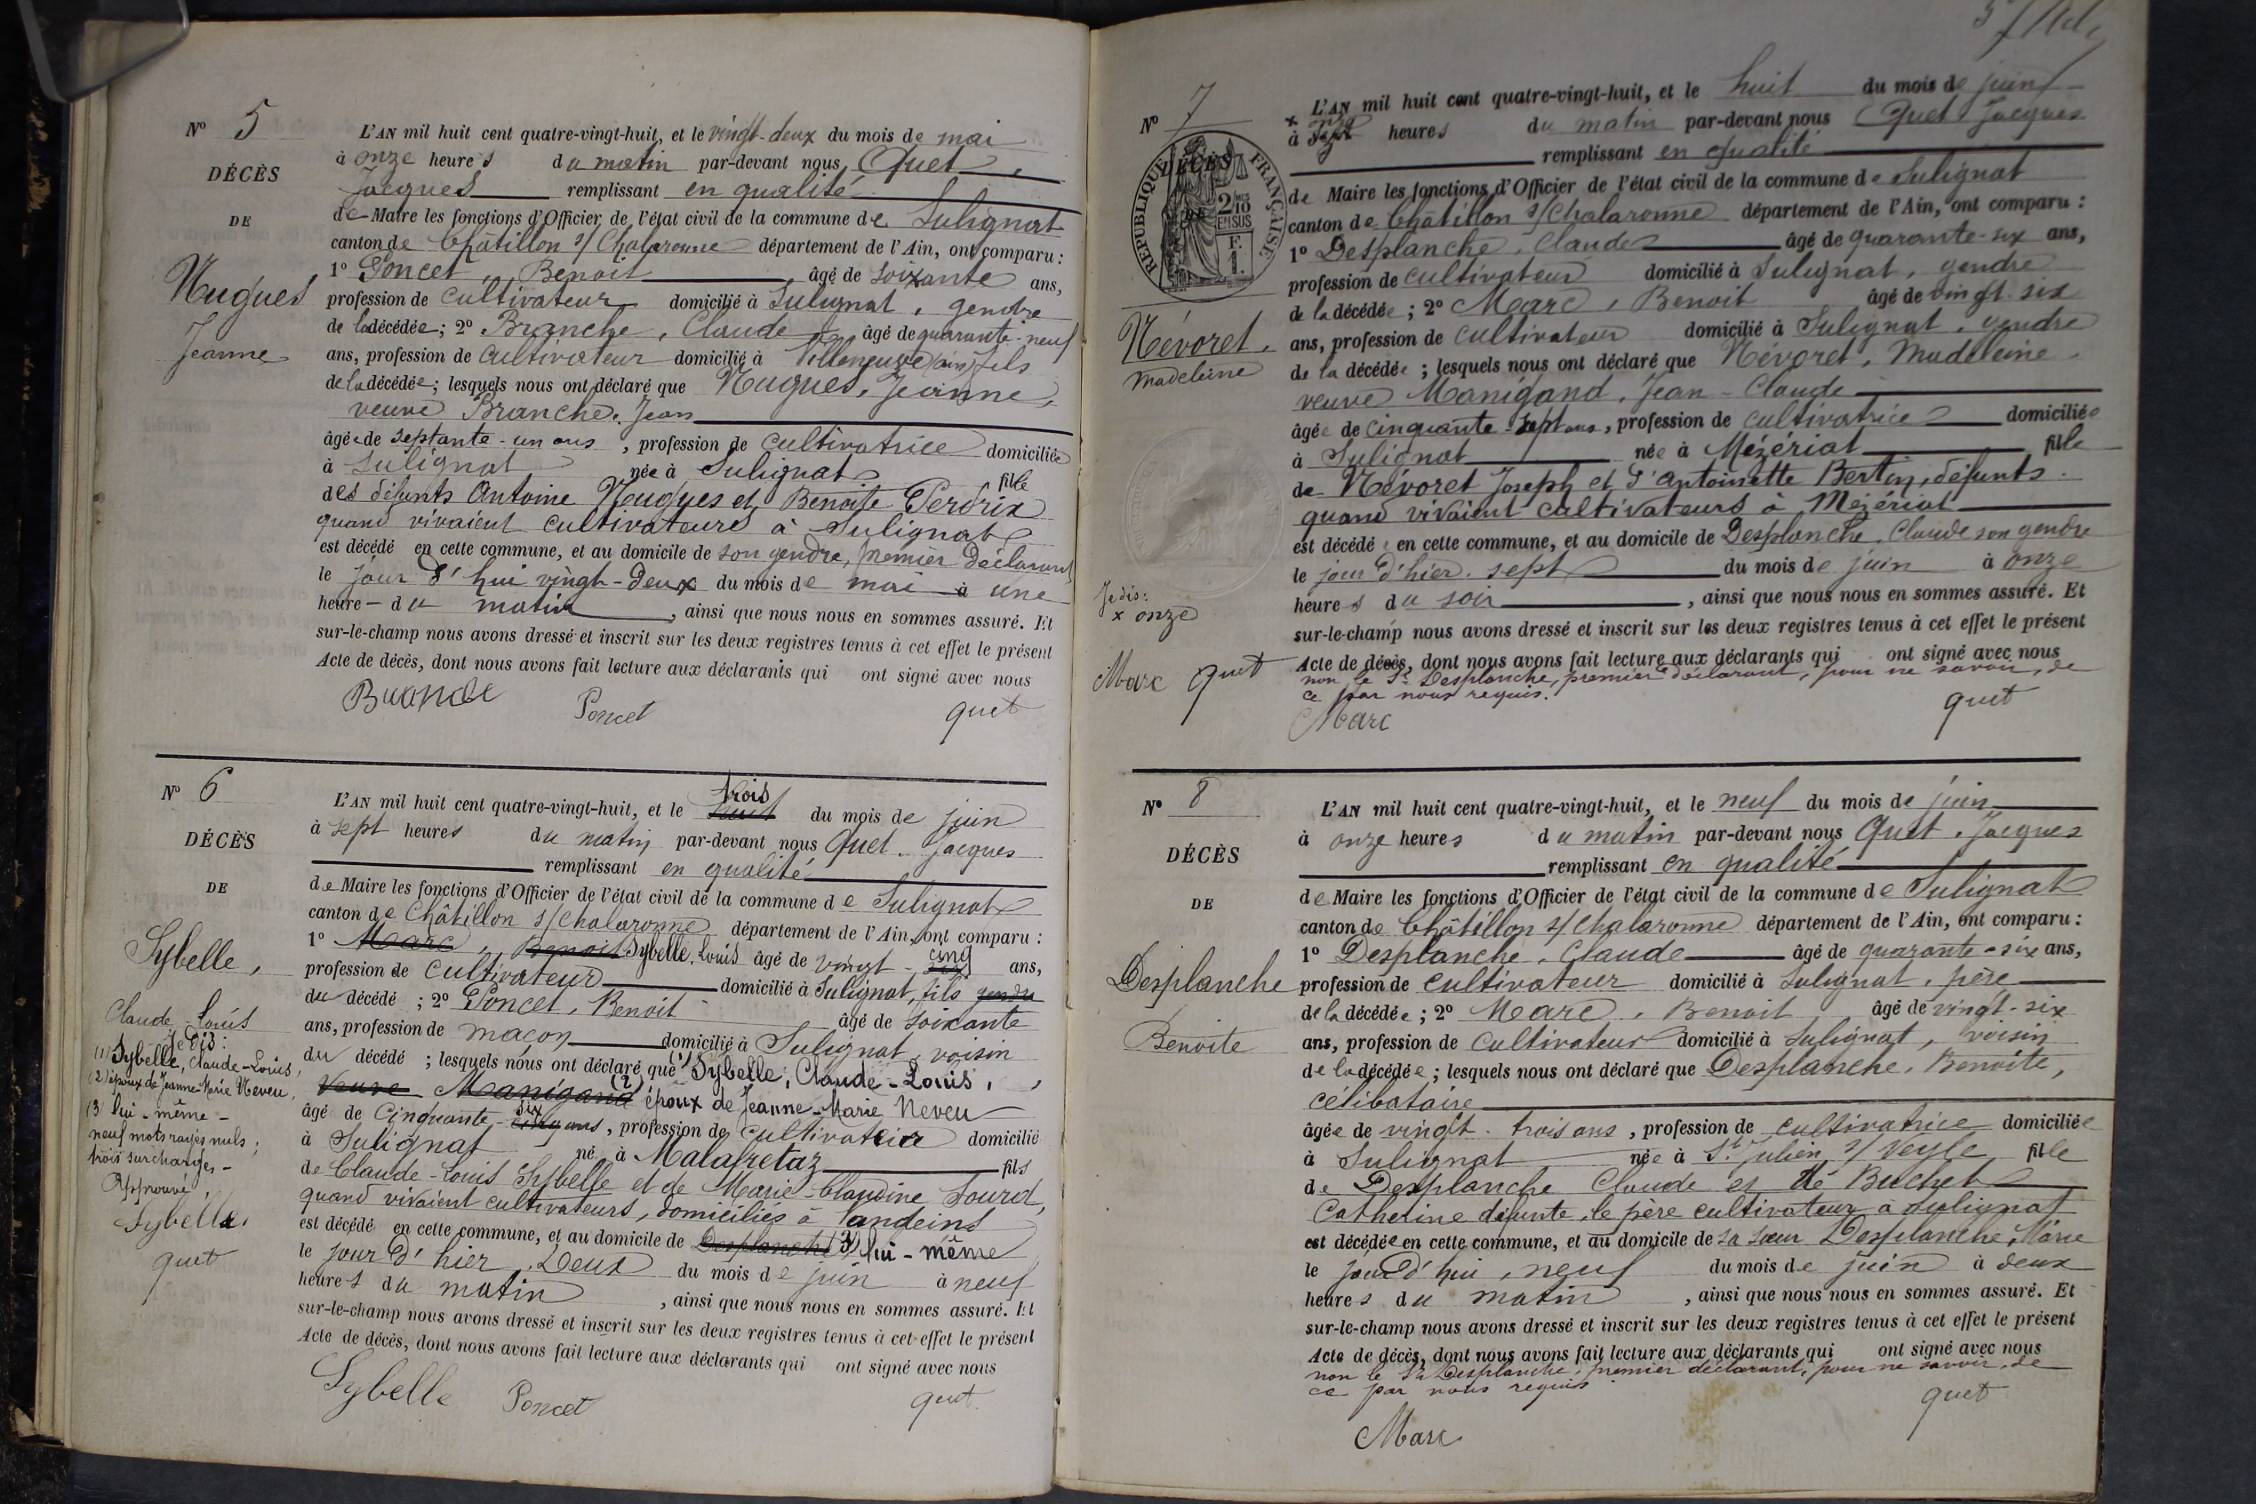 Nº 5
DÉCÈS
DE
Nugues
Jeanne
L'AN mil huit cent quatre-vingt-huit, et le vingt-deux du mois de mai
à onze heures du matin par-devant nous Quet
Jacques remplissant en qualité
de Maire les fonctions d'Officier de l'état civil de la commune de Sulignat
canton de Châtillon s/ Chalaronne département de l'Ain, ont comparu :
1º Poncet, Benoit âgé de soixante ans,
profession de cultivateur domicilié à Sulignat, gendre
de la décédée ; 2º Branche, Claude âgé de quarante-neuf
ans, profession de cultivateur domicilié à Villeneuve (ain) fils
de la décédée ; lesquels nous ont déclaré que Nugues, Jeanne,
veuve Branche, Jean
âgée de septante-un ans, profession de cultivatrice domiciliée
à Sulignat née à Sulignat fille
des défunts Antoine Nugues et Benoite Perdrix
quand vivaient cultivateurs à Sulignat
est décédé en cette commune, et au domicile de son gendre, premier déclarant
le jour d'hui vingt-deux du mois de mai à une
heure - du matin, ainsi que nous nous en sommes assuré. Et
sur-le-champ nous avons dressé et inscrit sur les deux registres tenus à cet effet le présent
Acte de décès, dont nous avons fait lecture aux déclarants qui ont signé avec nous
Branche Poncet quet
Nº 6
DÉCÈS
DE
Sybelle,
Claude-Louis
je dis :
(1) Sybelle, Claude-Louis,
(2) époux de Jeanne-Marie Neveu,
(3) lui-même -
neuf mots rayés nuls ;
trois surcharges -
Approuvé,
Sybelle,
quet
L'AN mil huit cent quatre-vingt-huit, et le trois du mois de juin
à sept heures du matin par-devant nous Quet. Jacques
remplissant en qualité
de Maire les fonctions d'Officier de l'état civil de la commune de Sulignat
canton de Châtillon s/ Chalaronne département de l'Ain, ont comparu :
1º Marc, Benoit Sybelle, Louis âgé de vingt-cinq six ans,
profession de cultivateur domicilié à Sulignat, fils gendre
du décédé ; 2º Poncet, Benoit âgé de soixante
ans, profession de maçon domicilié à Sulignat, voisin
du décédé ; lesquels nous ont déclaré que (1) Sybelle, Claude-Louis,
veuve Manigand (2) époux de Jeanne-Marie Neveu
âgé de cinquante-six ans, profession de cultivateur domicilié
à Sulignat né à Malafretaz fils
de Claude-Louis Sybelle et de Marie-Claudine Sourd,
quand vivaient cultivateurs, domiciliés à Vandeins
est décédé en cette commune, et au domicile de Desplanche (3) lui-même
le jour d'hier, deux du mois de juin à neuf
heures du matin, ainsi que nous nous en sommes assuré. Et
sur-le-champ nous avons dressé et inscrit sur les deux registres tenus à cet effet le présent
Acte de décès, dont nous avons fait lecture aux déclarants qui ont signé avec nous
Sybelle Poncet quet
Nº 7
DÉCÈS
DE
RÉPUBLIQUE FRANÇAISE
2/10 EN SUS
F.
1.
Névoret,
Madeleine
Je dis :
x onze
Marc quet
L'AN mil huit cent quatre-vingt-huit, et le huit du mois de juin
à sept x onze heures du matin par-devant nous Quet Jacques
remplissant en qualité
de Maire les fonctions d'Officier de l'état civil de la commune de Sulignat
canton de Châtillon s/ Chalaronne département de l'Ain, ont comparu :
1º Desplanche, Claude âgé de quarante-six ans,
profession de cultivateur domicilié à Sulignat, gendre
de la décédée ; 2º Marc, Benoit âgé de vingt-six
ans, profession de cultivateur domicilié à Sulignat, gendre
de la décédée ; lesquels nous ont déclaré que Névoret, Madeleine,
veuve Manigand, Jean-Claude
âgée de cinquante-sept ans, profession de cultivatrice domiciliée
à Sulignat née à Mézériat fille
de Névoret Joseph et d'Antoinette Bertin, défunts.
quand vivaient cultivateurs à Mézériat
est décédé en cette commune, et au domicile de Desplanche, Claude son gendre
le jour d'hier, sept du mois de juin à onze
heures du soir, ainsi que nous nous en sommes assuré. Et
sur-le-champ nous avons dressé et inscrit sur les deux registres tenus à cet effet le présent
Acte de décès, dont nous avons fait lecture aux déclarants qui ont signé avec nous
non le Sr. Desplanche, premier déclarant, pour ne savoir, de
ce par nous requis.
Marc quet
Nº 8
DÉCÈS
DE
Desplanche
Benoite
L'AN mil huit cent quatre-vingt-huit, et le neuf du mois de juin
à onze heures du matin par-devant nous Quet, Jacques
remplissant en qualité
de Maire les fonctions d'Officier de l'état civil de la commune de Sulignat
canton de Châtillon s/ Chalaronne département de l'Ain, ont comparu :
1º Desplanche, Claude âgé de quarante-six ans,
profession de cultivateur domicilié à Sulignat, père
de la décédée ; 2º Marc, Benoit âgé de vingt-six
ans, profession de cultivateur domicilié à Sulignat, voisin
de la décédée ; lesquels nous ont déclaré que Desplanche, Benoite,
célibataire
âgée de vingt-trois ans, profession de cultivatrice domiciliée
à Sulignat née à St. Julien s/ Veyle fille
de Desplanche Claude et de Buchet
Catherine défunte, le père cultivateur à Sulignat
est décédée en cette commune, et au domicile de sa sœur Desplanche, Marie
le jour d'hui, neuf du mois de juin à deux
heures du matin, ainsi que nous nous en sommes assuré. Et
sur-le-champ nous avons dressé et inscrit sur les deux registres tenus à cet effet le présent
Acte de décès, dont nous avons fait lecture aux déclarants qui ont signé avec nous
non le Sr Desplanche, premier déclarant, pour ne savoir, de
ce par nous requis
Marc quet